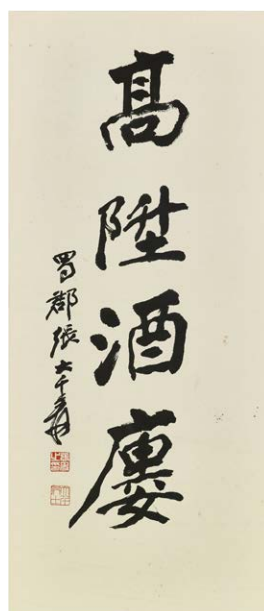 髙陞酒廔
蜀郡張大千爰